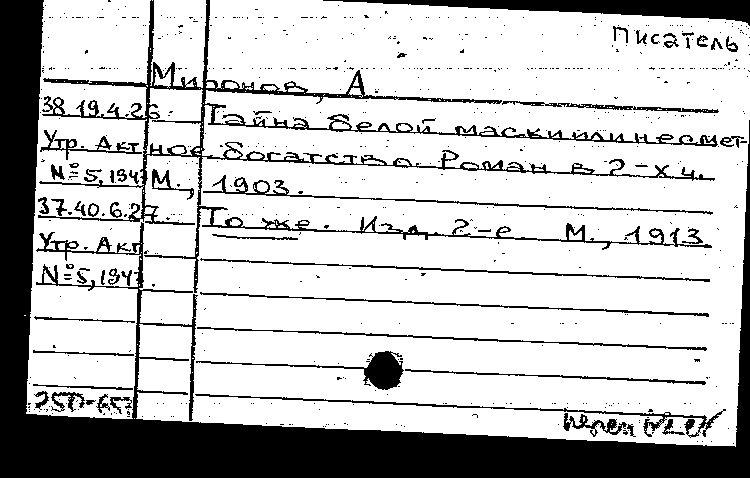 Писатель
Миронов, А.
38.19.4.26. Тайна белой маски или несмет-
Утр. Акт ное богатство. Роман в 2-х ч.
№5, 1947 М., 1903.
37.40.6.27. То же. Изд. 2-е М., 1913.
Утр. Акт.
№5, 1947.